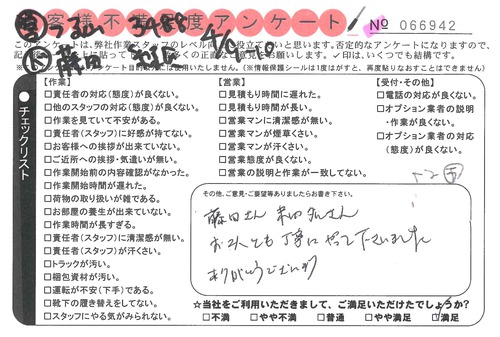 お客様不満足度アンケート
No 066942
3488
4/9
このアンケートは、弊社作業スタッフのレベル向上に役立てたいと思います。否定的なアンケートになりますので、
✓印は、いくつでも結構です。
(※情報保護シールは1度はがすと、再度貼りなおすことはできません)
チェックリスト
【作業】
□責任者の対応(態度)が良くない。
□他のスタッフの対応(態度)が良くない。
□作業を見ていて不安がある。
□責任者(スタッフ)に好感が持てない。
□お客様への挨拶が出来ていない。
□ご近所への挨拶・気遣いが無い。
□作業開始前の内容確認がなかった。
□作業開始時間が遅れた。
□荷物の取り扱いが雑である。
□お部屋の養生が出来ていない。
□作業時間が長すぎる。
□責任者(スタッフ)に清潔感が無い。
□責任者(スタッフ)が汗くさい。
□トラックが汚い。
□梱包資材が汚い。
□運転が不安(下手)である。
□靴下の履き替えをしてない。
□スタッフにやる気がみられない。
【営業】
□見積もり時間に遅れた。
□見積もり時間が長い。
□営業マンに清潔感が無い。
□営業マンが煙草くさい。
□営業マンが汗くさい。
□営業態度が良くない。
□営業の説明と作業が一致してない。
【受付・その他】
□電話の対応が良くない。
□オプション業者の説明
・作業が良くない。
□オプション業者の対応
(態度)が良くない。
その他、ご意見・ご要望等ありましたらお書き下さい。
藤田さん
さん
お2人とも丁寧にやって下さいました
ありがとうございます
☆当社をご利用いただきまして、ご満足いただけたでしょうか?
□不満 □やや不満 □普通 □やや満足 □満足